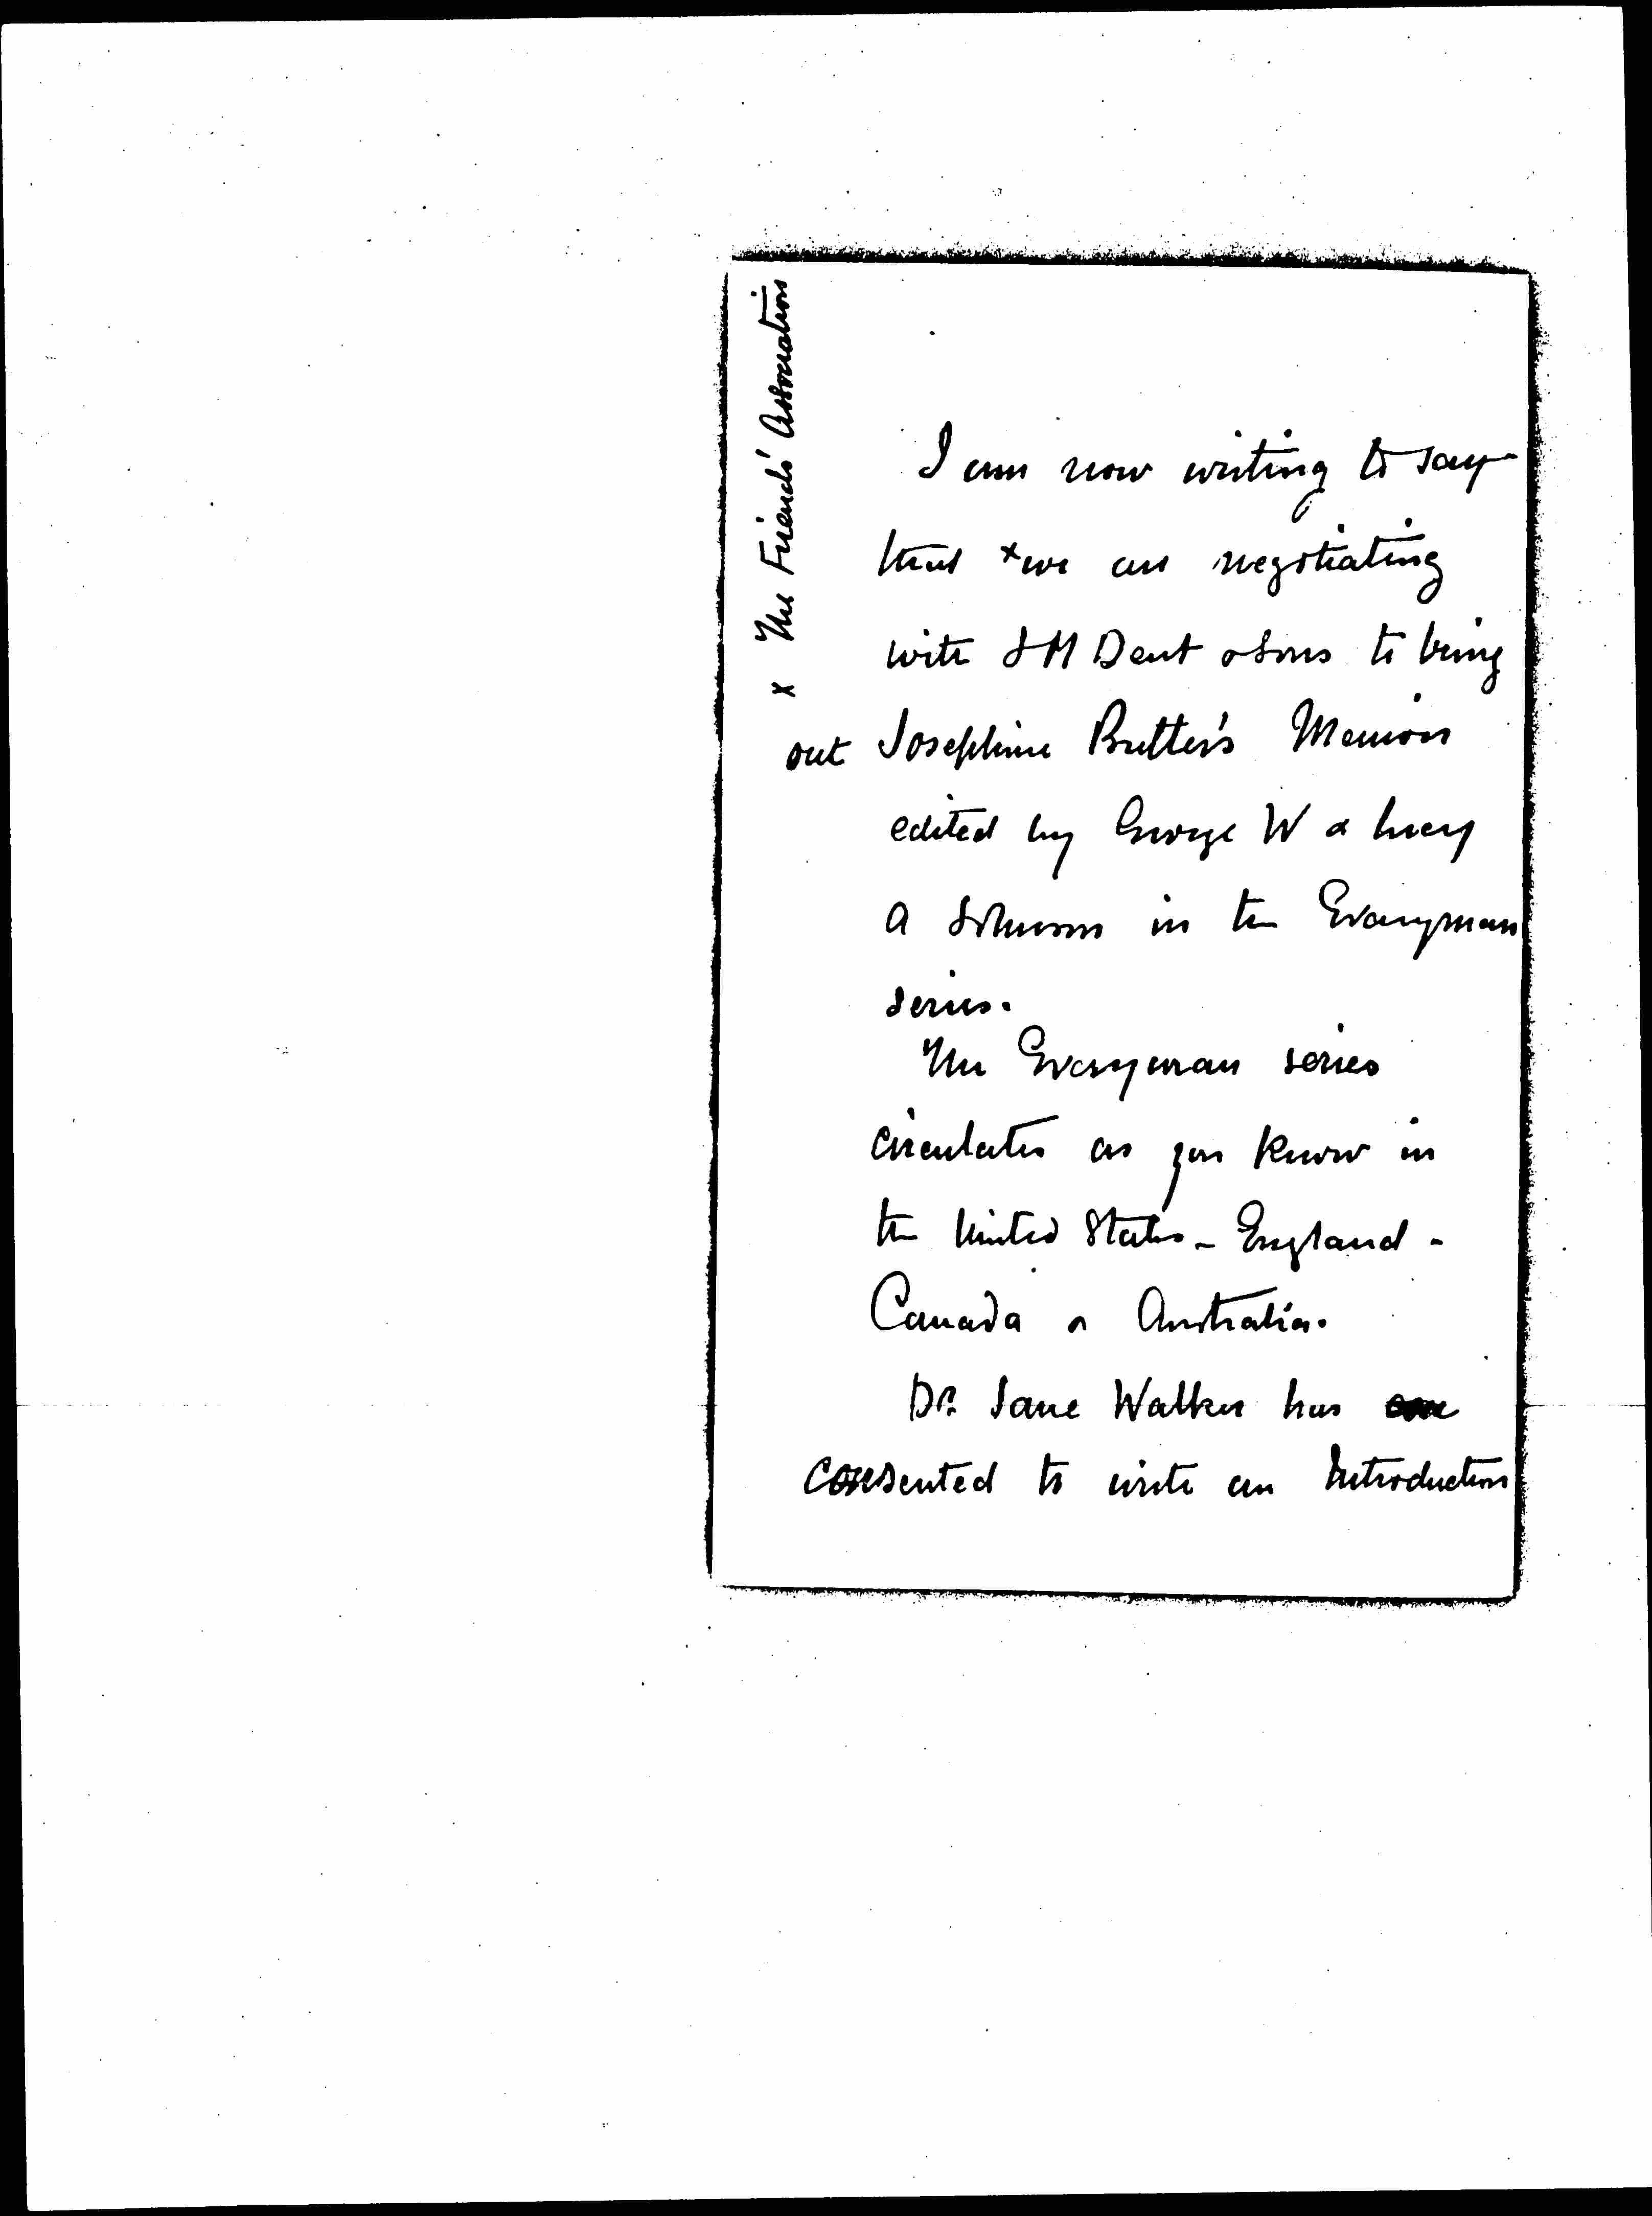 x The Friends' Association
I am now writing to say
that x we are negotiating
with J M Dent & Sons to bring
out Josephine Butler's Memoir
edited by George W & Lucy
A Johnson in the Everyman
series.
The Everyman series
circulates as you know in
the United States - England -
Canada & Australia.
Dr. Jane Walker has
consented to write an Introduction